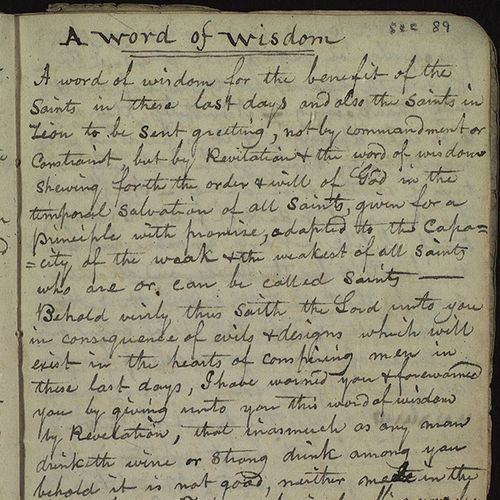 A word of Wisdom
sec 89
A word of wisdom for the benefit of the
Saints in these last days and also the Saints in
Zion to be sent greeting, not by commandment or
Constraint, but by Revilation & the word of wisdom
Shewing forth the order & will of God in the
temporal Salvation of all Saints, given for a
Principle with promise, adapted to the Capa=
=city of the weak & the weakest of all Saints
who are or can be called Saints —
Behold verily thus Saith the Lord unto you
in consequence of evils & designs which will
exist in the hearts of conspiring men in
these last days, I have warned you & forewarned
you by giving unto you this word of wisdom
by Revelation, that inasmuch as any man
drinketh wine or Strong drink among you
behold it is not good, neither meet in the